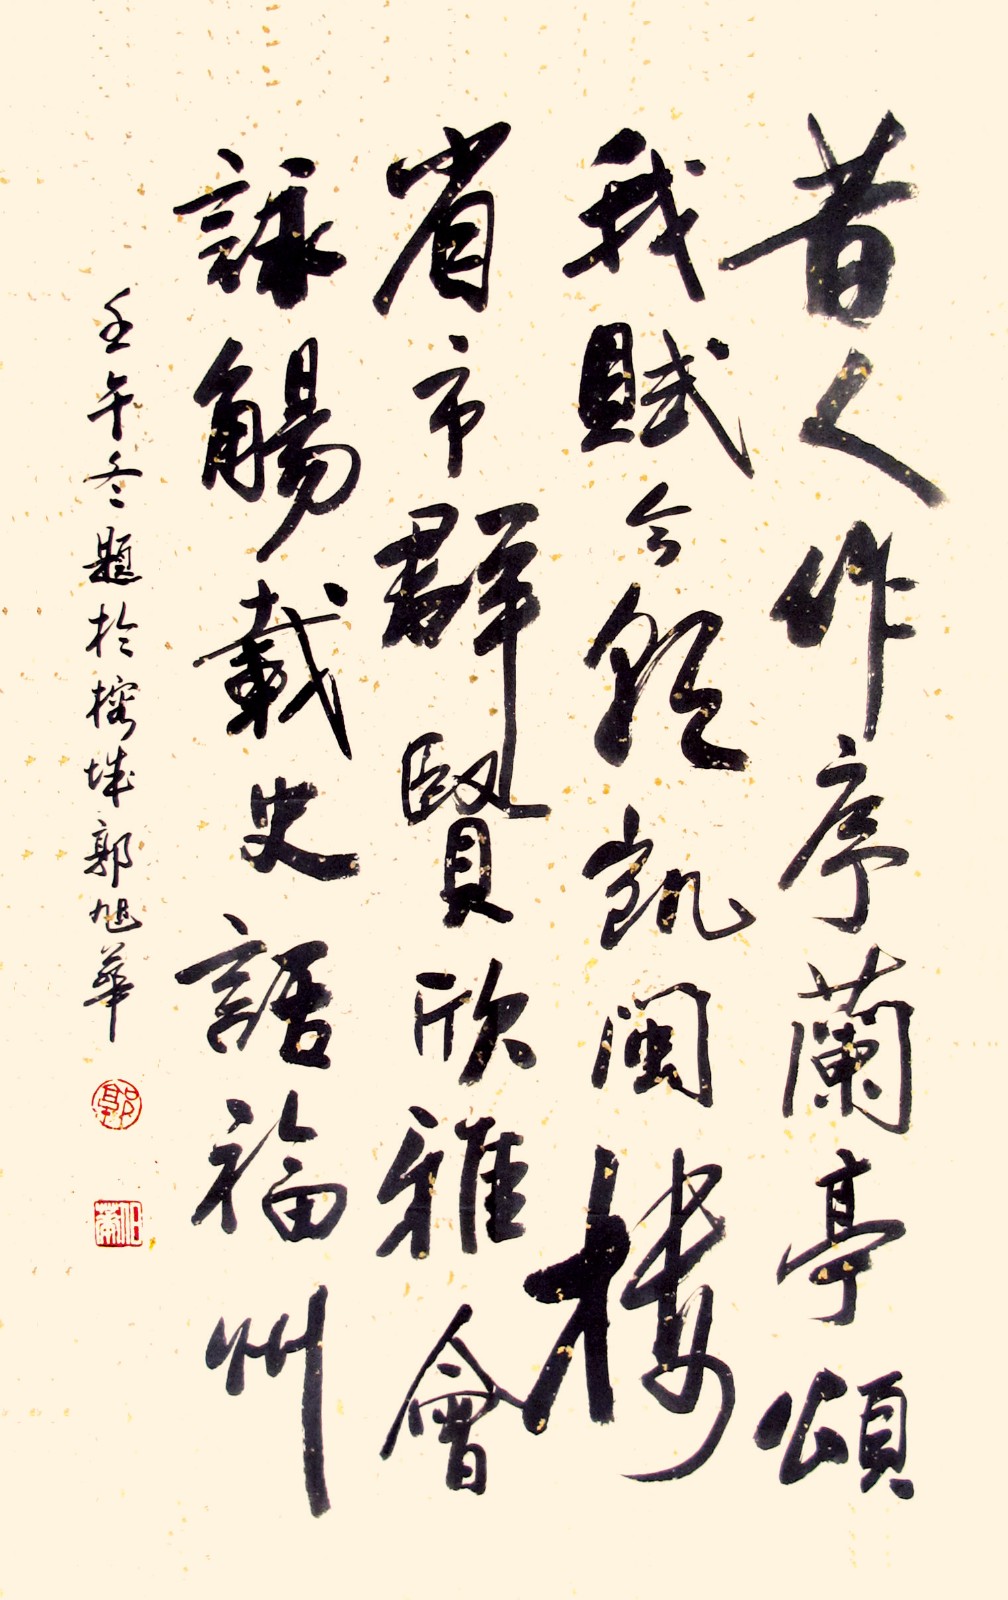 昔人作序蘭亭頌
我賦今凱閩樓
省市群賢欣雅會
詠觴載史語福州
壬午冬題於榕城郭旭華
郭